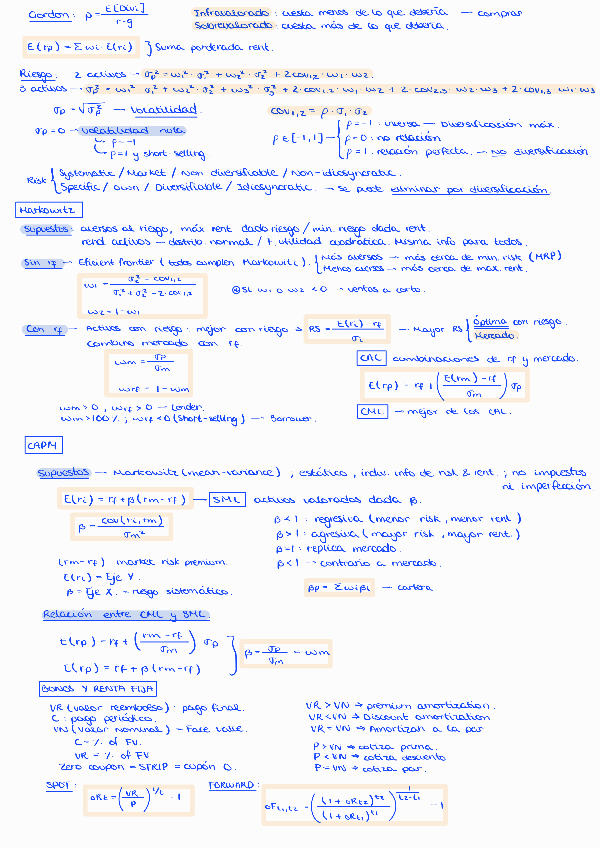 Gordon: P = E[Div1] / r-g
Infravalorado: cuesta menos de lo que debería — comprar
Sobrevalorado: cuesta más de lo que debería.
E(rp) = Σ wi · E(ri) } Suma ponderada rent.
Riesgo: 2 activos → σp² = w1² · σ1² + w2² · σ2² + 2cov1,2 · w1 · w2.
3 activos → σp² = w1² · σ1² + w2² · σ2² + w3² · σ3² + 2cov1,2 · w1 · w2 + 2cov2,3 · w2 · w3 + 2cov1,3 w1 w3
σp = √σp² — Volatilidad.
cov1,2 = ρ · σ1 · σ2
σp = 0 → volatilidad nula
ρ = -1
ρ = 1 y short-selling
ρ ∈ [-1,1]
ρ = -1 : inversa — Diversificación máx.
ρ = 0 : no relación
ρ = 1 : relación perfecta. — No diversificación.
Risk { Systematic / Market / Non diversifiable / Non-idiosyncratic.
Specific / own / Diversifiable / Idiosyncratic. → Se puede eliminar por diversificación.
Markowitz
Supuestos: aversos al riesgo, máx rent dado riesgo / min. riesgo dada rent.
rend. activos — distrib. normal / f. utilidad cuadrática. Misma info para todos.
Sin rf — Efficient frontier (todos cumplen Markowitz). { Más aversos → más cerca de min. risk (MRP)
Menos aversos → más cerca de max. rent.
w1 = σ2² - cov1,2 / σ1² + σ2² - 2·cov1,2
w2 = 1 - w1
⊛ Si w1 o w2 < 0 → ventas a corto.
Con rf — Activos con riesgo: mejor con riesgo → RS = E(ri) - rf / σi — Mayor RS { Óptima con riesgo.
Mercado.
combino mercado con rf.
wm = σp / σm
wrf = 1 - wm
CAL combinaciones de rf y mercado.
E(rp) = rf + (E(rm) - rf / σm) σp
wm > 0, wrf > 0 — Lender.
wm > 100%; wrf < 0 (short-selling) — Borrower.
CML — mejor de las CAL.
CAPM
Supuestos — Markowitz (mean-variance), estático, indiv. info de risk & rent.; no impuestos
ni imperfección
E(ri) = rf + β(rm - rf) — SML activos valorados dada β.
β = cov(ri, rm) / σm²
β < 1 : regresiva (menor risk, menor rent)
β > 1 : agresiva (mayor risk, mayor rent.)
β = 1 : replica mercado.
β < 1 → contrario a mercado.
(rm - rf) market risk premium.
E(ri) = Eje Y.
β = Eje X. — riesgo sistemático.
βp = Σ wi βi — cartera
Relación entre CML y SML.
E(rp) = rf + (rm - rf / σm) σp
E(rp) = rf + β(rm - rf)
β = σp / σm = wm
BONOS Y RENTA FIJA
VR (valor reembolso): pago final.
C : pago periódico.
VN (valor nominal) = Face value.
C = % of FV.
VR = % of FV
Zero coupon = STRIP = cupón 0.
VR > VN → premium amortization.
VR < VN → Discount amortization
VR = VN → Amortizan a la par
P > VN → cotiza prima.
P < VN → cotiza descuento
P = VN → cotiza par.
SPOT:
0Rt = (VR / P)^1/t - 1
FORWARD:
0Ft1,t2 = ((1 + 0Rt2)^t2 / (1 + 0Rt1)^t1)^1/t2-t1 - 1